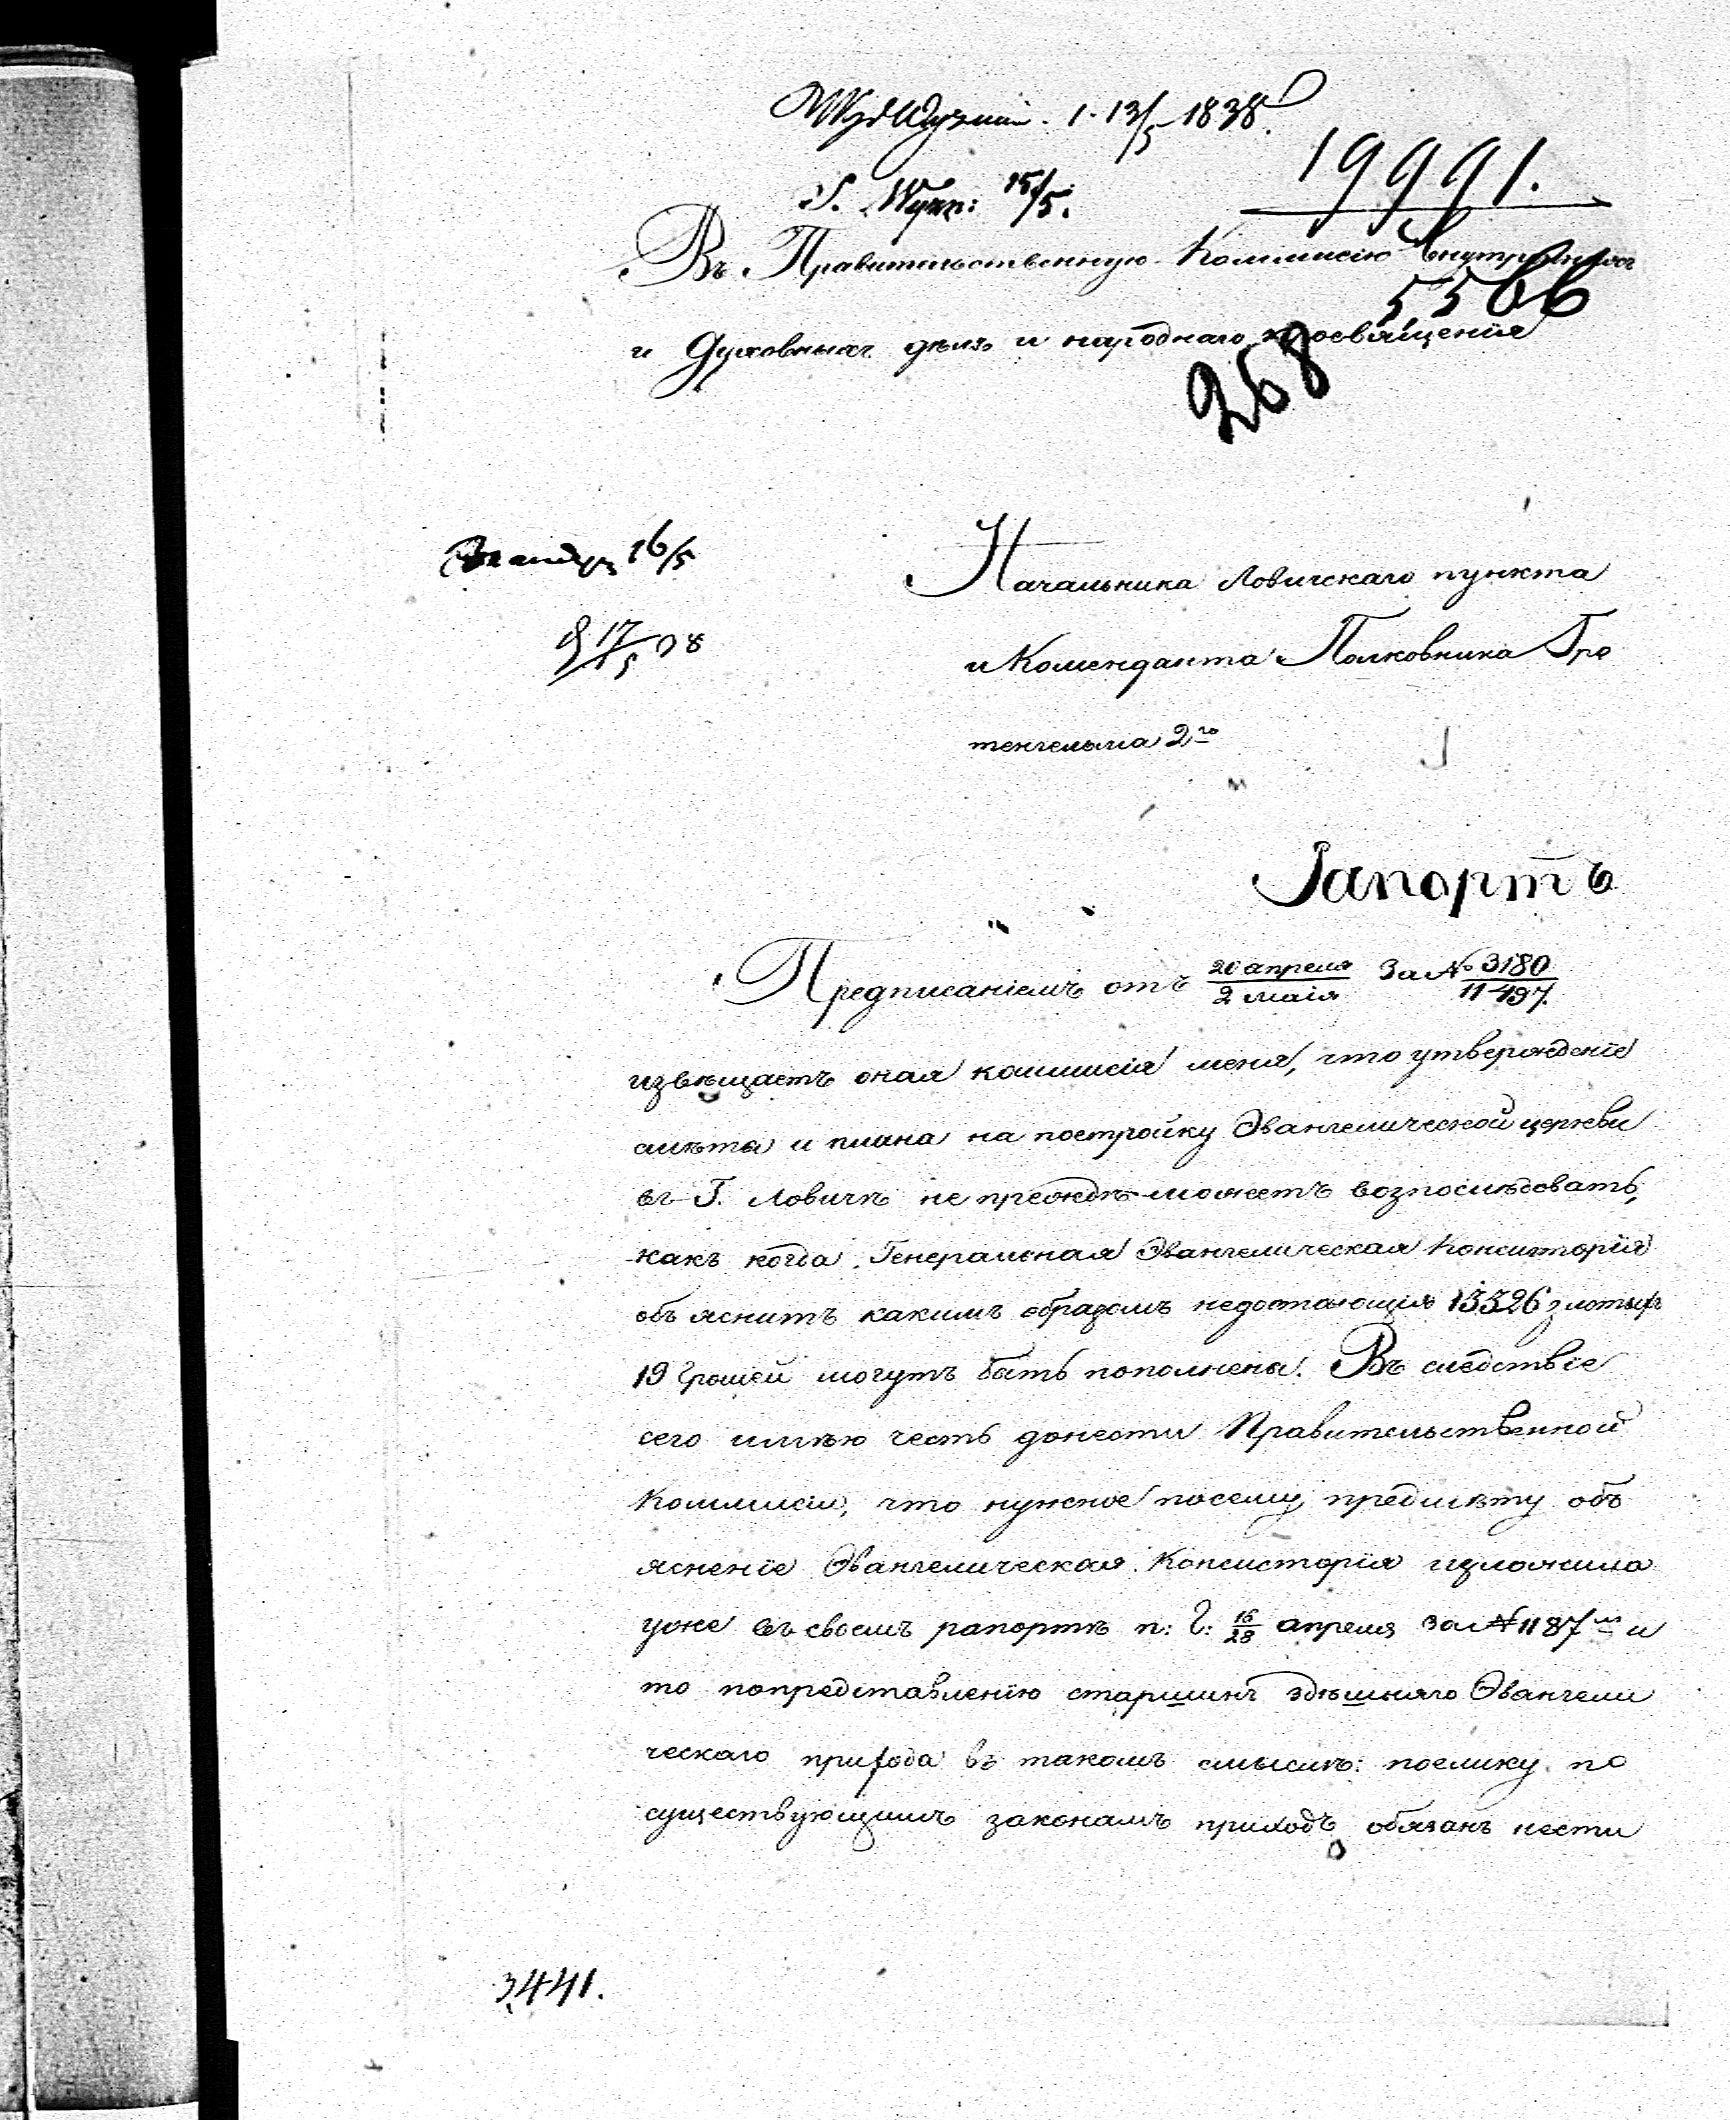 1. 13/5 1838.
19991.
15/5.
Въ Правительственную Коммисію Внутреннихъ
5566
и Духовныхъ дѣлъ и народнаго просвященія
268
16/5
17/5 38
Начальника Ловичскаго пункта
и Коменданта Полковника Гро
тенгельма 2го
Рапортъ
Предписаніемъ отъ 20 апреля / 2 маія За № 3180 / 11497.
извѣщаетъ оная коммисія меня, что утвержденіе
смѣты и плана на постройку Эвангелической церкви
въ Г. Ловичѣ не преждѣ можетъ возпослѣдовать,
какъ когда Генеральная Эвангелическая Консисторія
объ яснитъ какимъ образомъ недостающія 13326 злотыхъ
19 Грошей могутъ быть пополнены. Въ следствіе
сего имѣю честь донести Правительственной
Коммисіи, что нужное посему предмѣту объ
ясненіе Эвангелическая Консисторія изложила
уже въ своемъ рапортѣ п: г: 16/28 апреля за № 1187мъ и
то попредставленію старшинъ здѣшняго Эвангели
ческаго прихода въ такомъ смыслѣ: поелику по
существующимъ законамъ приходъ обязанъ нести
3441.